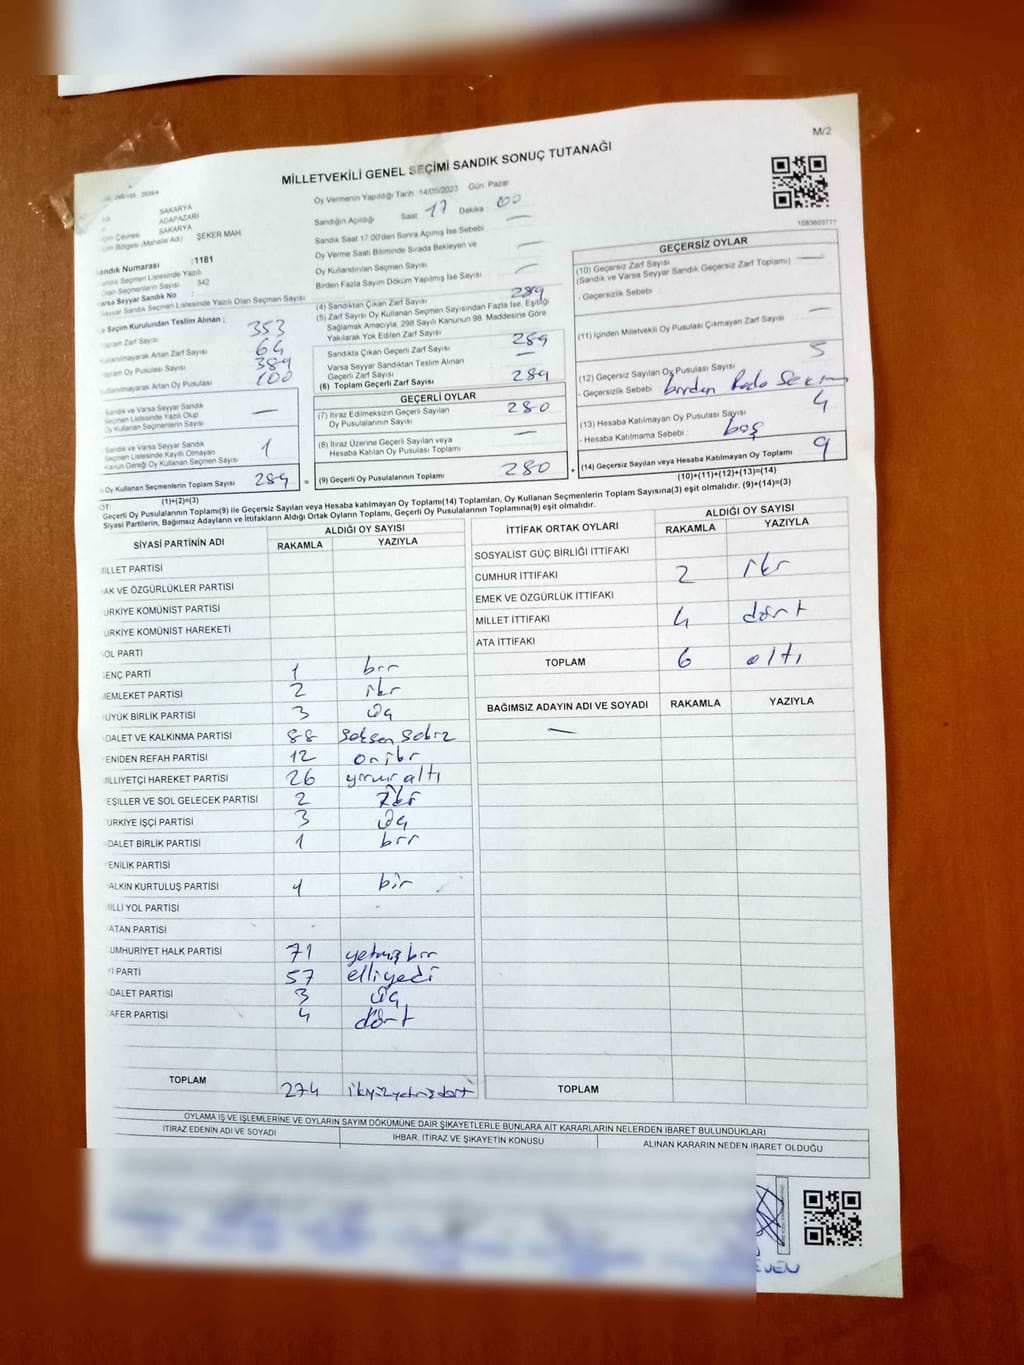 M/2
MİLLETVEKİLİ GENEL SEÇİMİ SANDIK SONUÇ TUTANAĞI
1083603777
SAKARYA
ADAPAZARI
Çevresi SAKARYA
Bölgesi (Mahalle Adı) ŞEKER MAH
andık Numarası :1181
andık Seçmen Listesinde Yazılı
Olan Seçmenlerin Sayısı 342
arsa Seyyar Sandık No :
Seyyar Sandık Seçmen Listesinde Yazılı Olan Seçmen Sayısı
e Seçim Kurulundan Teslim Alınan :
oplam Zarf Sayısı 353
ullanılmayarak Artan Zarf Sayısı 64
oplam Oy Pusulası 389
ullanılmayarak Artan Oy Pusulası 100
Sandık ve Varsa Seyyar Sandık
Seçmen Listesinde Yazılı Olup
Oy Kullanan Seçmenlerin Sayısı —
Sandık ve Varsa Seyyar Sandık
Seçmen Listesinde Kayıtlı Olmayan
Kanun Gereği Oy Kullanan Seçmen Sayısı 1
Oy Kullanan Seçmenlerin Toplam Sayısı 289 =
(1)+(2)=(3)
Oy Vermenin Yapıldığı Tarih 14/05/2023 Gün Pazar
Sandığın Açıldığı Saat 17 Dakika 00
Sandık Saat 17:00'den Sonra Açmış İse Sebebi —
Oy Verme Saati Bitiminde Sırada Bekleyen ve
Oy Kullandırılan Seçmen Sayısı —
Birden Fazla Sayım Döküm Yapılmış İse Sayısı —
(4) Sandıktan Çıkan Zarf Sayısı 289
(5) Zarf Sayısı Oy Kullanan Seçmen Sayısından Fazla İse, Eşitliği
Sağlamak Amacıyla, 298 Sayılı Kanunun 98. Maddesine Göre
Yakılarak Yok Edilen Zarf Sayısı
Sandıkta Çıkan Geçerli Zarf Sayısı 289
Varsa Seyyar Sandıktan Teslim Alınan
Geçerli Zarf Sayısı —
(6) Toplam Geçerli Zarf Sayısı 289
GEÇERLİ OYLAR
(7) İtiraz Edilmeksizin Geçerli Sayılan
Oy Pusulalarının Sayısı 280
(8) İtiraz Üzerine Geçerli Sayılan veya
Hesaba Katılan Oy Pusulası Toplamı —
(9) Geçerli Oy Pusulalarının Toplamı 280 +
GEÇERSİZ OYLAR
(10) Geçersiz Zarf Sayısı
(Sandık ve Varsa Seyyar Sandık Geçersiz Zarf Toplamı) —
- Geçersizlik Sebebi :
(11) İçinden Milletvekili Oy Pusulası Çıkmayan Zarf Sayısı —
(12) Geçersiz Sayılan Oy Pusulası Sayısı 5
- Geçersizlik Sebebi birden
(13) Hesaba Katılmayan Oy Pusulası Sayısı 4
- Hesaba Katılmama Sebebi : boş
(14) Geçersiz Sayılan veya Hesaba Katılmayan Oy Toplamı 9
(10)+(11)+(12)+(13)=(14)
Geçerli Oy Pusulalarının Toplamı(9) ile Geçersiz Sayılan veya Hesaba katılmayan Oy Toplamı(14) Toplamları, Oy Kullanan Seçmenlerin Toplam Sayısına(3) eşit olmalıdır. (9)+(14)=(3)
Siyasi Partilerin, Bağımsız Adayların ve İttifakların Aldığı Ortak Oyların Toplamı, Geçerli Oy Pusulalarının Toplamına(9) eşit olmalıdır.
SİYASİ PARTİNİN ADI ALDIĞI OY SAYISI
RAKAMLA YAZIYLA
İLLET PARTİSİ
AK VE ÖZGÜRLÜKLER PARTİSİ
ÜRKİYE KOMÜNİST PARTİSİ
ÜRKİYE KOMÜNİST HAREKETİ
OL PARTİ
ENÇ PARTİ 1 bir
EMLEKET PARTİSİ 2 iki
ÜYÜK BİRLİK PARTİSİ 3 üç
DALET VE KALKINMA PARTİSİ 88 seksen sekiz
ENİDEN REFAH PARTİSİ 12 on iki
İLLİYETÇİ HAREKET PARTİSİ 26 yirmi altı
EŞİLLER VE SOL GELECEK PARTİSİ 2 iki
ÜRKİYE İŞÇİ PARTİSİ 3 üç
DALET BİRLİK PARTİSİ 1 bir
ENİLİK PARTİSİ
ALKIN KURTULUŞ PARTİSİ 1 bir
İLLİ YOL PARTİSİ
ATAN PARTİSİ
UMHURİYET HALK PARTİSİ 71 yetmiş bir
Yİ PARTİ 57 elliyedi
DALET PARTİSİ 3 üç
AFER PARTİSİ 4 dört
TOPLAM 274 ikiyüzyetmişdört
İTTİFAK ORTAK OYLARI ALDIĞI OY SAYISI
RAKAMLA YAZIYLA
SOSYALİST GÜÇ BİRLİĞİ İTTİFAKI
CUMHUR İTTİFAKI 2 iki
EMEK VE ÖZGÜRLÜK İTTİFAKI
MİLLET İTTİFAKI 4 dört
ATA İTTİFAKI
TOPLAM 6 altı
BAĞIMSIZ ADAYIN ADI VE SOYADI RAKAMLA YAZIYLA
—
TOPLAM
OYLAMA İŞ VE İŞLEMLERİNE VE OYLARIN SAYIM DÖKÜMÜNE DAİR ŞİKAYETLERLE BUNLARA AİT KARARLARIN NELERDEN İBARET BULUNDUKLARI
İTİRAZ EDENİN ADI VE SOYADI İHBAR, İTİRAZ VE ŞİKAYETİN KONUSU ALINAN KARARIN NEDEN İBARET OLDUĞU